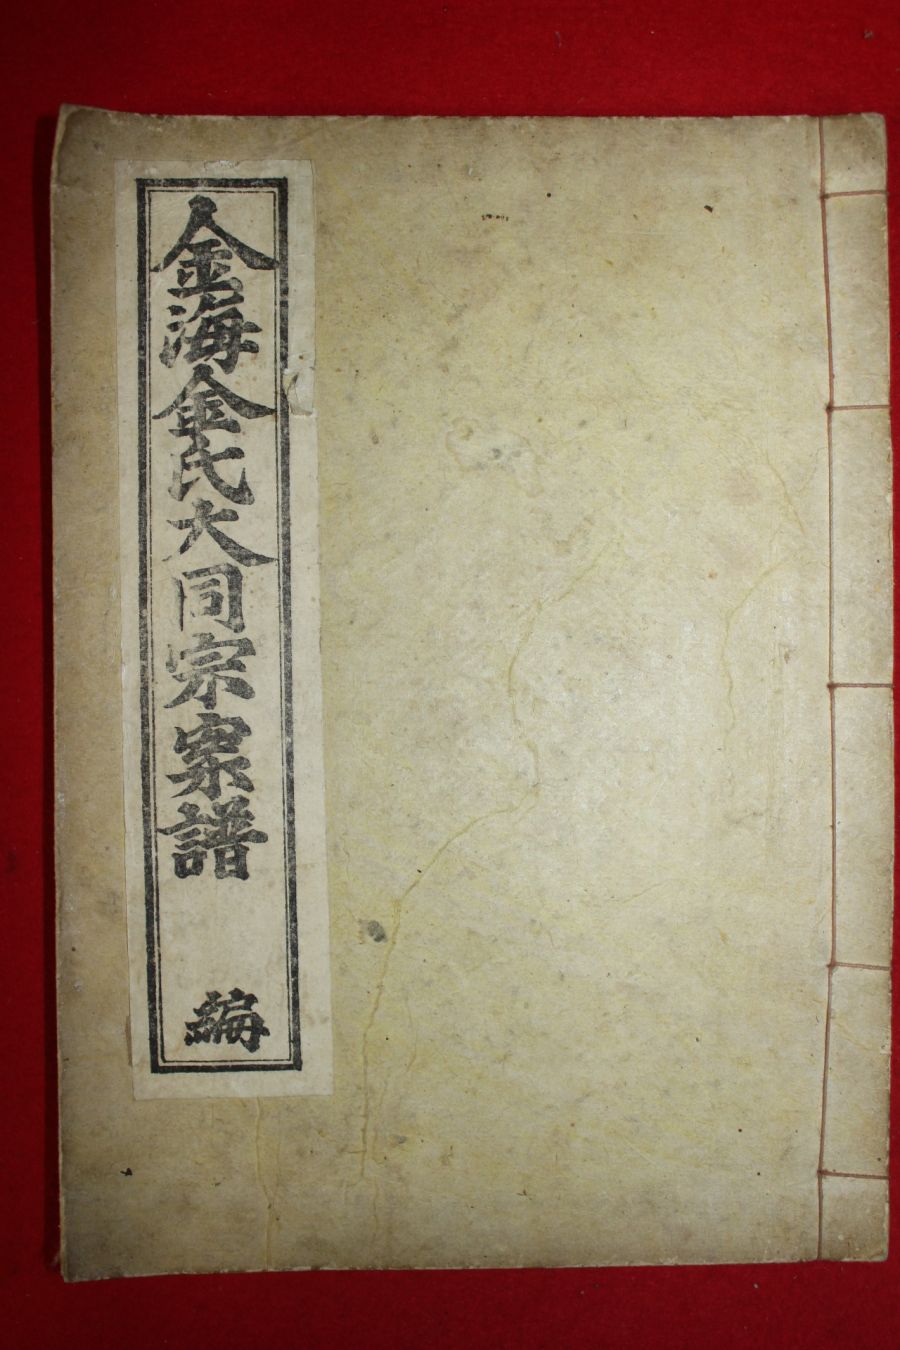 金海金氏大同宗案譜
編